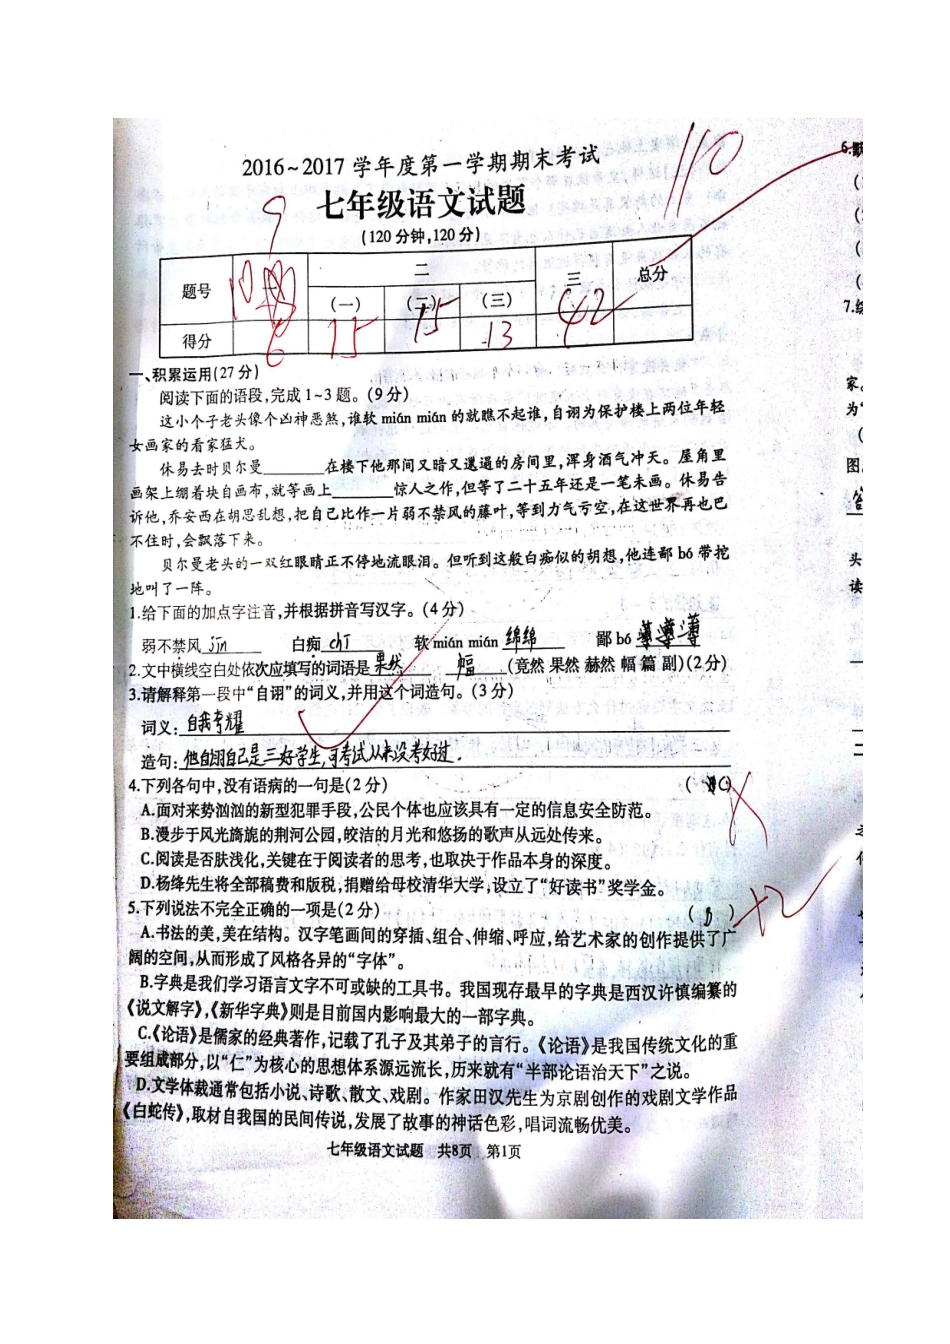 110
2016~2017 学年度第一学期期末考试
七年级语文试题
9
(120 分钟,120 分)
题号 一 二 三 总分
(一) (二) (三)
得分 6 15 15 13 42
一、积累运用(27 分)
阅读下面的语段,完成 1~3 题。(9 分)
这小个子老头像个凶神恶煞,谁软 mián mián 的就瞧不起谁,自诩为保护楼上两位年轻
女画家的看家猛犬。
休易去时贝尔曼______在楼下他那间又暗又邋遢的房间里,浑身酒气冲天。屋角里
画架上绷着块自画布,就等画上______惊人之作,但等了二十五年还是一笔未画。休易告
诉他,乔安西在胡思乱想,把自己比作一片弱不禁风的藤叶,等到力气亏空,在这世界再也巴
不住时,会飘落下来。
贝尔曼老头的一双红眼睛正不停地流眼泪。但听到这般白痴似的胡想,他连鄙 bó 带挖
地叫了一阵。
1.给下面的加点字注音,并根据拼音写汉字。(4 分)
弱不禁风 jīn 白痴 chī 软 mián mián 绵绵 鄙 bó 薄
2.文中横线空白处依次应填写的词语是 果然 幅 (竟然 果然 赫然 幅 篇 副)(2分)
3.请解释第一段中“自诩”的词义,并用这个词造句。(3 分)
词义: 自我夸耀
造句: 他自诩自己是三好学生,可考试从来没考好过.
4.下列各句中,没有语病的一句是(2 分) ( C )
A.面对来势汹汹的新型犯罪手段,公民个体也应该具有一定的信息安全防范。
B.漫步于风光旖旎的荆河公园,皎洁的月光和悠扬的歌声从远处传来。
C.阅读是否肤浅化,关键在于阅读者的思考,也取决于作品本身的深度。
D.杨绛先生将全部稿费和版税,捐赠给母校清华大学,设立了“好读书”奖学金。
5.下列说法不完全正确的一项是(2 分) ( B )
A.书法的美,美在结构。汉字笔画间的穿插、组合、伸缩、呼应,给艺术家的创作提供了广
阔的空间,从而形成了风格各异的“字体”。
B.字典是我们学习语言文字不可或缺的工具书。我国现存最早的字典是西汉许慎编纂的
《说文解字》,《新华字典》则是目前国内影响最大的一部字典。
C.《论语》是儒家的经典著作,记载了孔子及其弟子的言行。《论语》是我国传统文化的重
要组成部分,以“仁”为核心的思想体系源远流长,历来就有“半部论语治天下”之说。
D.文学体裁通常包括小说、诗歌、散文、戏剧。作家田汉先生为京剧创作的戏剧文学作品
《白蛇传》,取材自我国的民间传说,发展了故事的神话色彩,唱词流畅优美。
七年级语文试题 共8页 第1页
6.默
7.综
家。
为“
图。
答
头
读
二